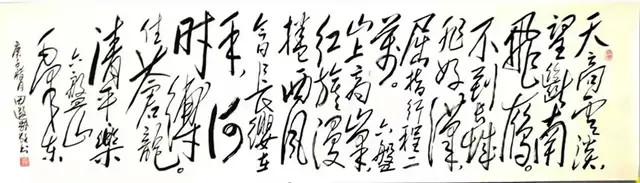 天高雲淡
望斷南
飛雁。
不到長城
非好漢,
屈指行程二
萬。六盤
山上高峰
紅旗漫
捲西風
今日長纓在
手,何
时縛
住蒼龍。
清平樂
六盤山
毛澤東
庚子 月 田